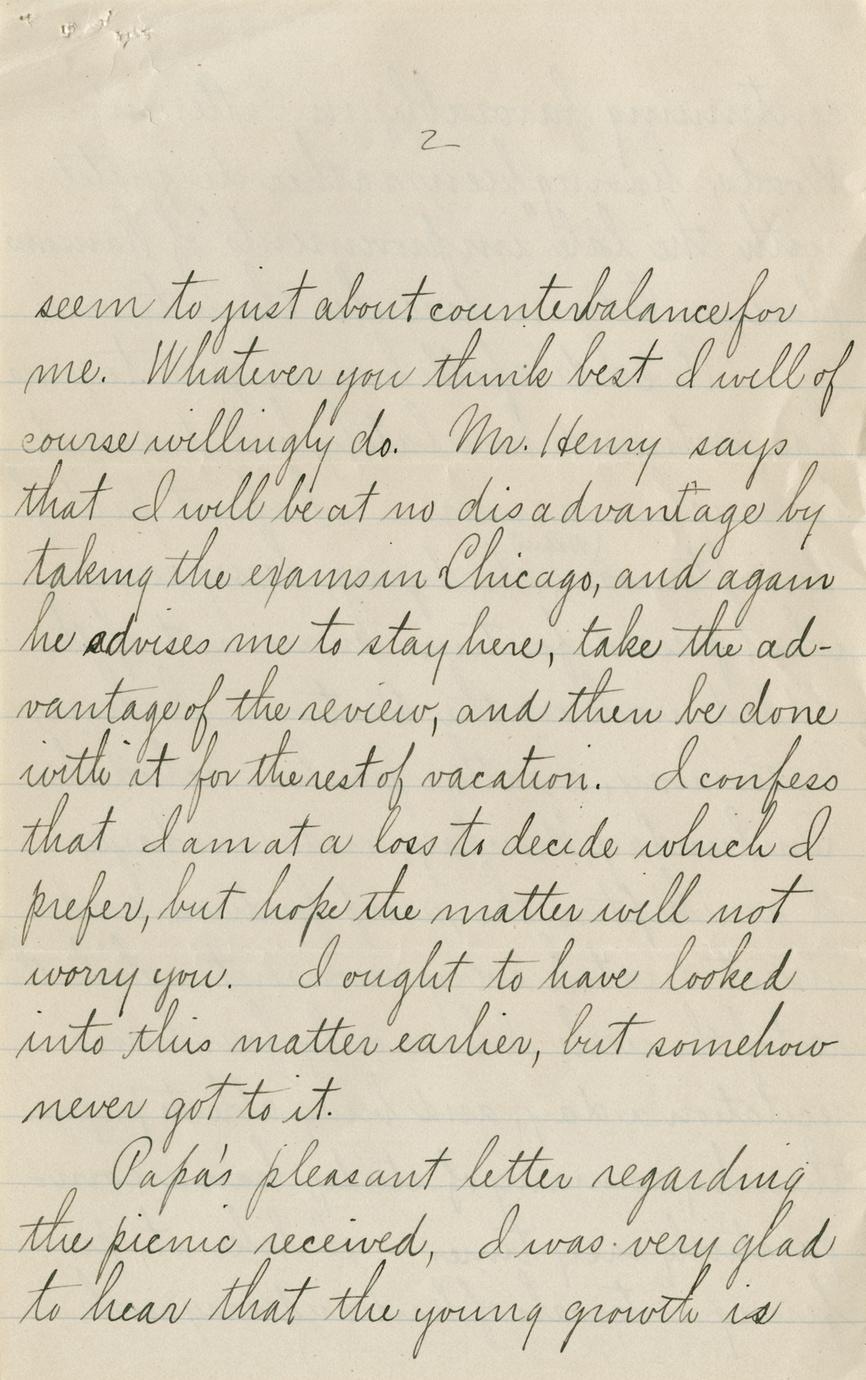 2
seem to just about counterbalance for
me. Whatever you think best I will of
course willingly do. Mr. Henry says
that I will be at no disadvantage by
taking the exams in Chicago, and again
he advises me to stay here, take the ad-
vantage of the review, and then be done
with it for the rest of vacation. I confess
that I am at a loss to decide which I
prefer, but hope the matter will not
worry you. I ought to have looked
into this matter earlier, but somehow
never got to it.
Papa's pleasant letter regarding
the picnic received, I was very glad
to hear that the young growth is